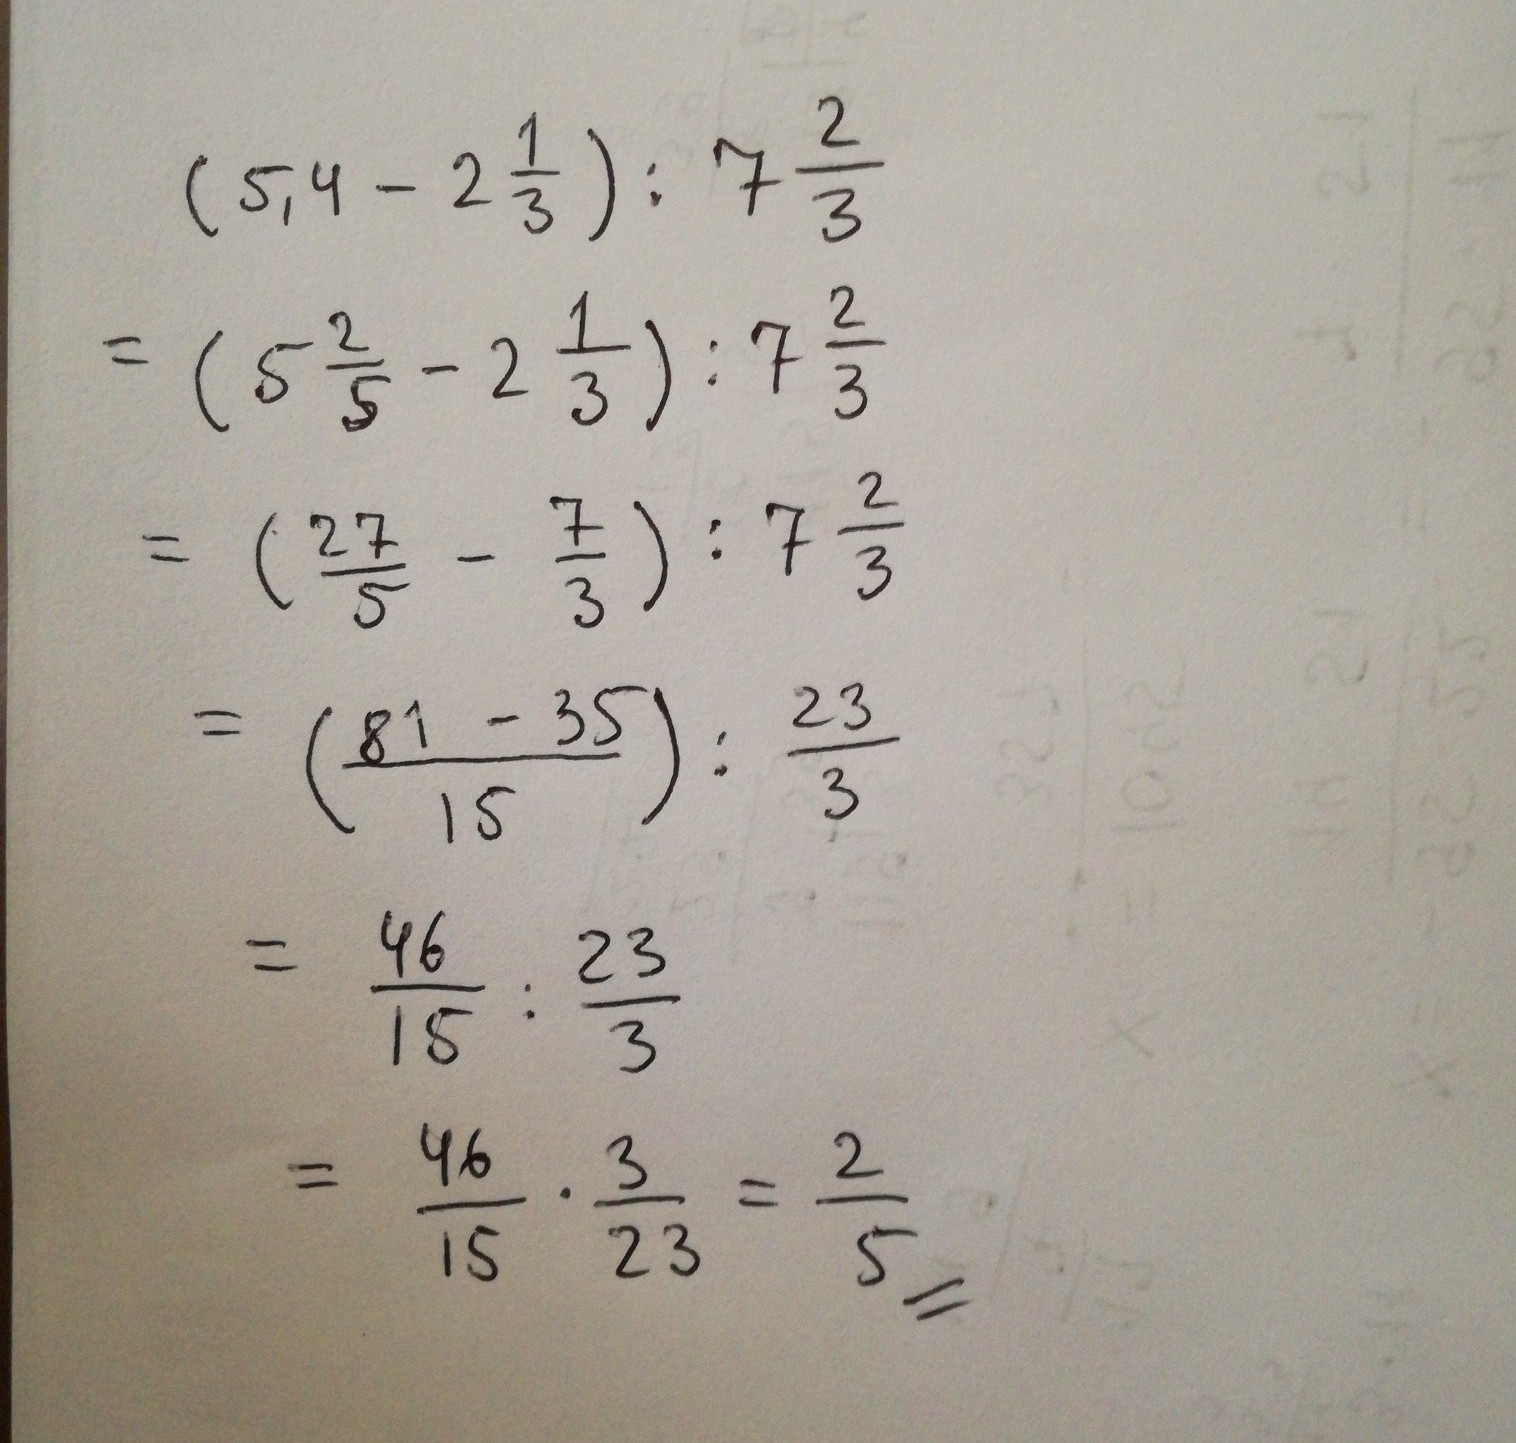 (5,4 - 2 1/3) : 7 2/3
= (5 2/5 - 2 1/3) : 7 2/3
= (27/5 - 7/3) : 7 2/3
= ((81 - 35)/15) : 23/3
= 46/15 : 23/3
= 46/15 · 3/23 = 2/5